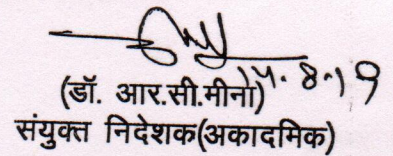 14.8.19
(डॉ. आर.सी.मीना)
संयुक्त निदेशक(अकादमिक)